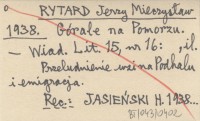 RYTARD Jerzy Mieczysław
1938. Górale na Pomorzu.
– Wiad. Lit. 15, nr 16: , il.
Przeludnienie wsi na Podhalu
i emigracja.
Rec.: JASIEŃSKI H. 1938...
BT/043/0402